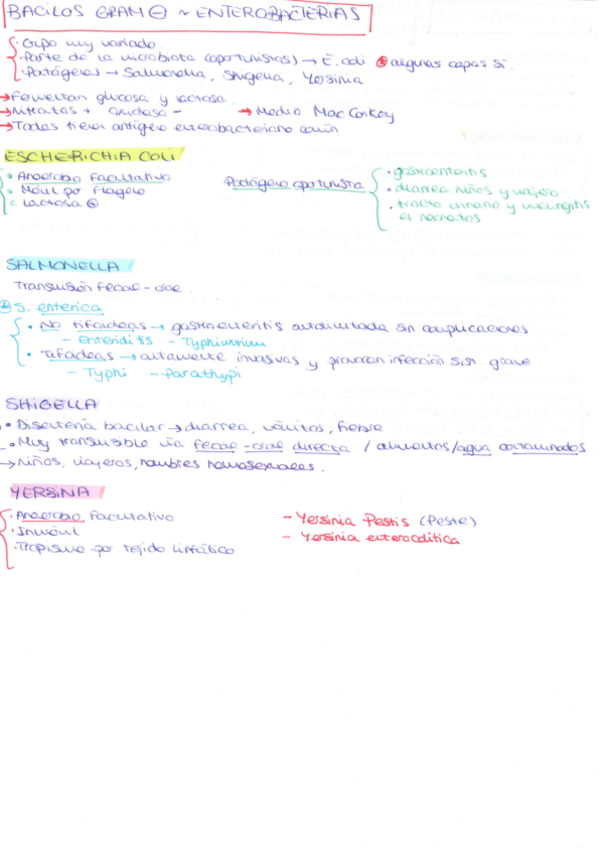 BACILOS GRAM ⊖ ~ ENTEROBACTERIAS
· Grupo muy variado
· Parte de la microbiota (oportunistas) → E. coli ⊛ algunas cepas sí.
· Patógenos → Salmonella, Shigella, Yersinia
→ Fermentan glucosa y lactosa
→ Nitratos + oxidasa - → Medio MacConkey
→ Todas tienen antígeno enterobacteriano común
ESCHERICHIA COLI
· Anaerobio Facultativo
· Móvil por Flagelo
· Lactosa ⊕
Patógeno oportunista
· gastroenteritis
· diarrea niños y viajero
· tracto urinario y meningitis
en neonatos
SALMONELLA
Transmisión Fecal-oral.
S. enterica
· No tifoideas → gastroenteritis autolimitada sin complicaciones
- Enteriditis - Typhimurium
· Tifoideas → altamente invasivas y provocan infección sist. grave
- Typhi - Parathypi
SHIGELLA
· Disentería bacilar → diarrea, vómitos, fiebre
· Muy transmisible vía fecal-oral directa / alimentos/agua contaminados
→ Niños, viajeros, hombres homosexuales.
YERSINA
· Anaerobio Facultativo
· Inmóvil
· Tropismo por tejido linfático
- Yersinia Pestis (Peste)
- Yersinia enterocolitica